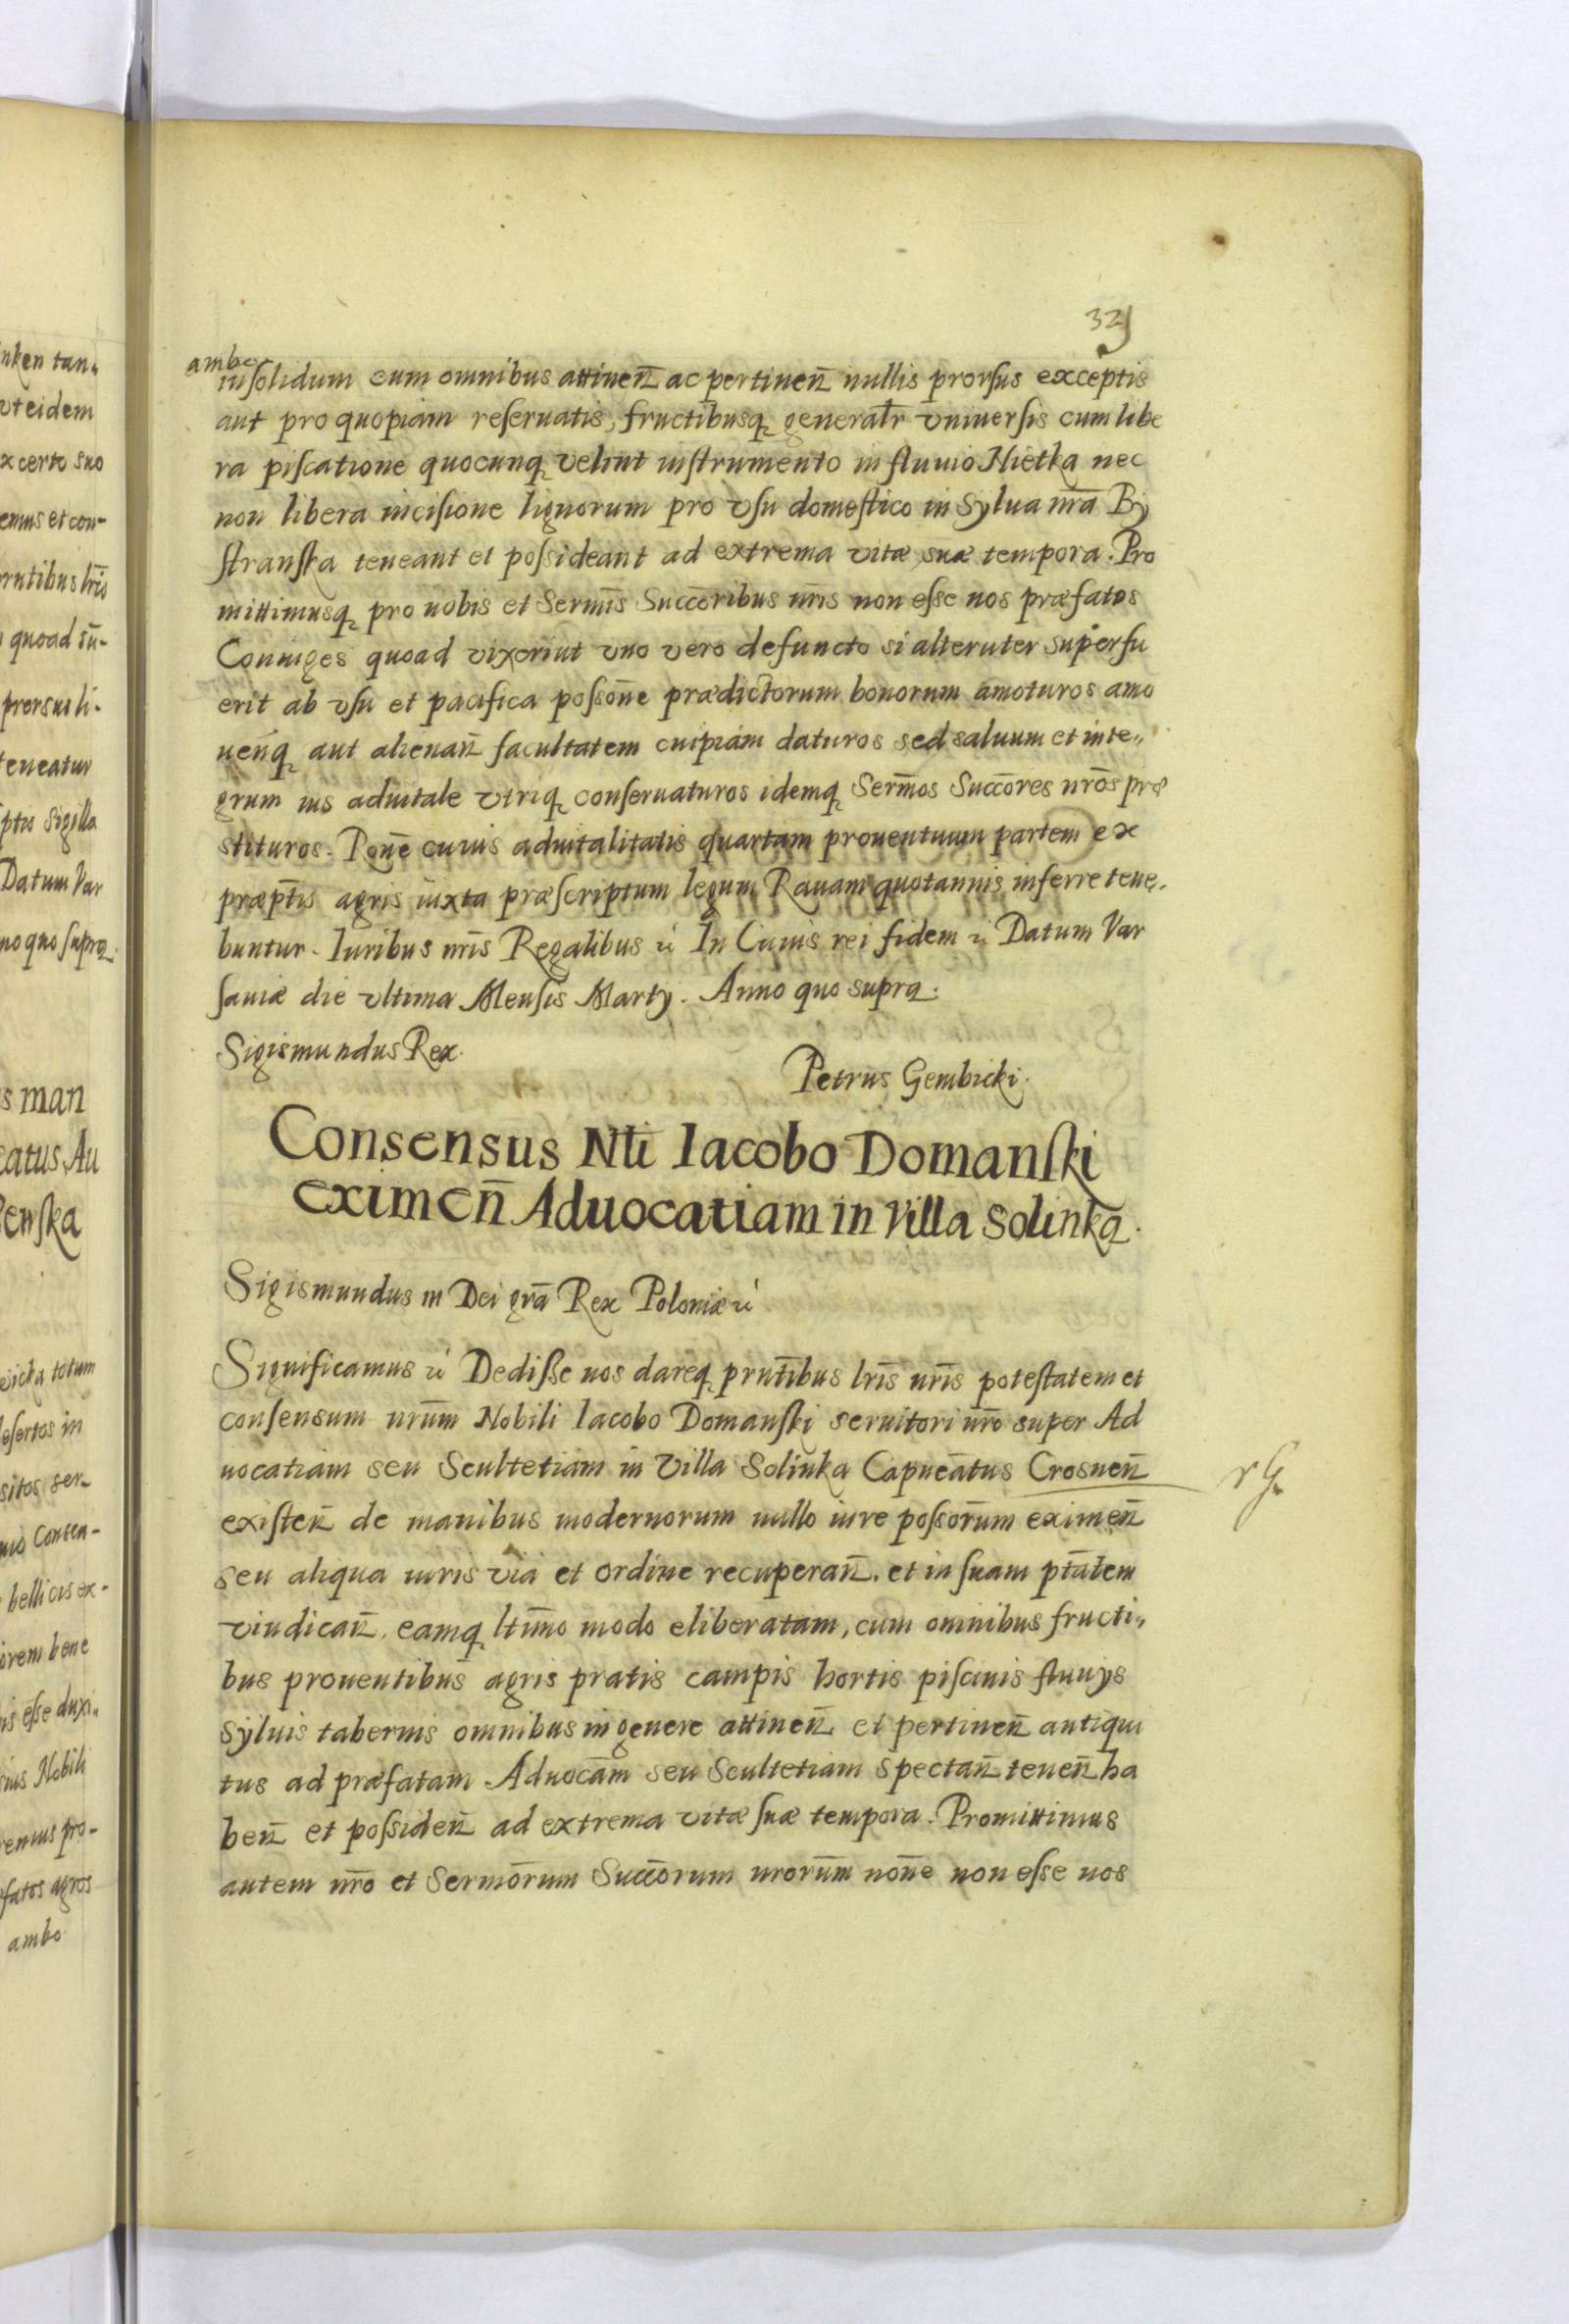 32
ambo
insolidum cum omnibus attineñ ac pertineñ nullis prorsus exceptis
aut pro quopiam reseruatis, fructibusq generalr vniuersis cum libe
ra piscatione quocunq velint instrumento in fluuio Nietka nec
non libera incisione lignorum pro vsu domestico in Sylua nrã By
stranska teneant et possideant ad extrema vitæ suæ tempora. Pro
mittimusq pro nobis et Sermis Succoribus nris non esse nos præfatos
Coniuges quoad vixerint vno vero defuncto si alteruter superfu
erit ab vsu et pacifica possone prædictorum bonorum amoturos amo
uenq aut alienañ facultatem cuipiam daturos sed saluum et inte„
grum ius aduitale vtriq conseruaturos idemq Sermos Succores nros præ
stituros. Rone cuius aduitalitatis quartam prouentuum partem ex
præptis agris iuxta præscriptum legum Rauam quotannis inferre tene.
buntur. Iuribus nris Regalibus &c In Cuius rei fidem &c Datum Var
sauiæ die vltima Mensis Marty. Anno quo supra.
Sigismundus Rex.
Petrus Gembicki.
Consensus Nli Iacobo Domanski
eximeñ Aduocatiam in Villa Solinka.
Sigismundus III Dei grã Rex Poloniæ &c
Significamus &c Dedisse nos dareq prntibus lris nris potestatem et
consensum nrum Nobili Iacobo Domanski seruitori nro super Ad
uocatiam seu Scultetiam in Villa Solinka Capneatus Crosneñ
existeñ de manibus modernorum nullo iure possorum eximeñ
seu aliqua iuris via et ordine recuperañ. et in suam ptatem
vindicañ. eamq ltimo modo eliberatam, cum omnibus fructi„
bus prouentibus agris pratis campis hortis piscinis fluuys
syluis tabernis omnibus in genere attineñ et pertineñ antiqui
tus ad præfatam Aduocam seu Scultetiam spectañ teneñ ha
beñ et possideñ ad extrema vitæ suæ tempora. Promittimus
autem nro et Sermorum Succorum nrorum none non esse nos